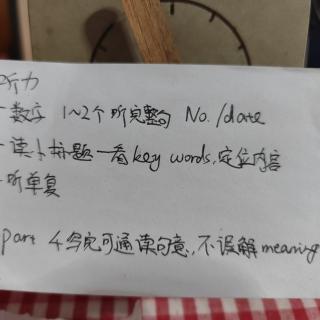 听力
- 数字 1~2个 听完整句 No. /date
- 读小标题 - 看key words, 定位内容
- 听单复
part 4 今完可通读句意, 不误解 meaning